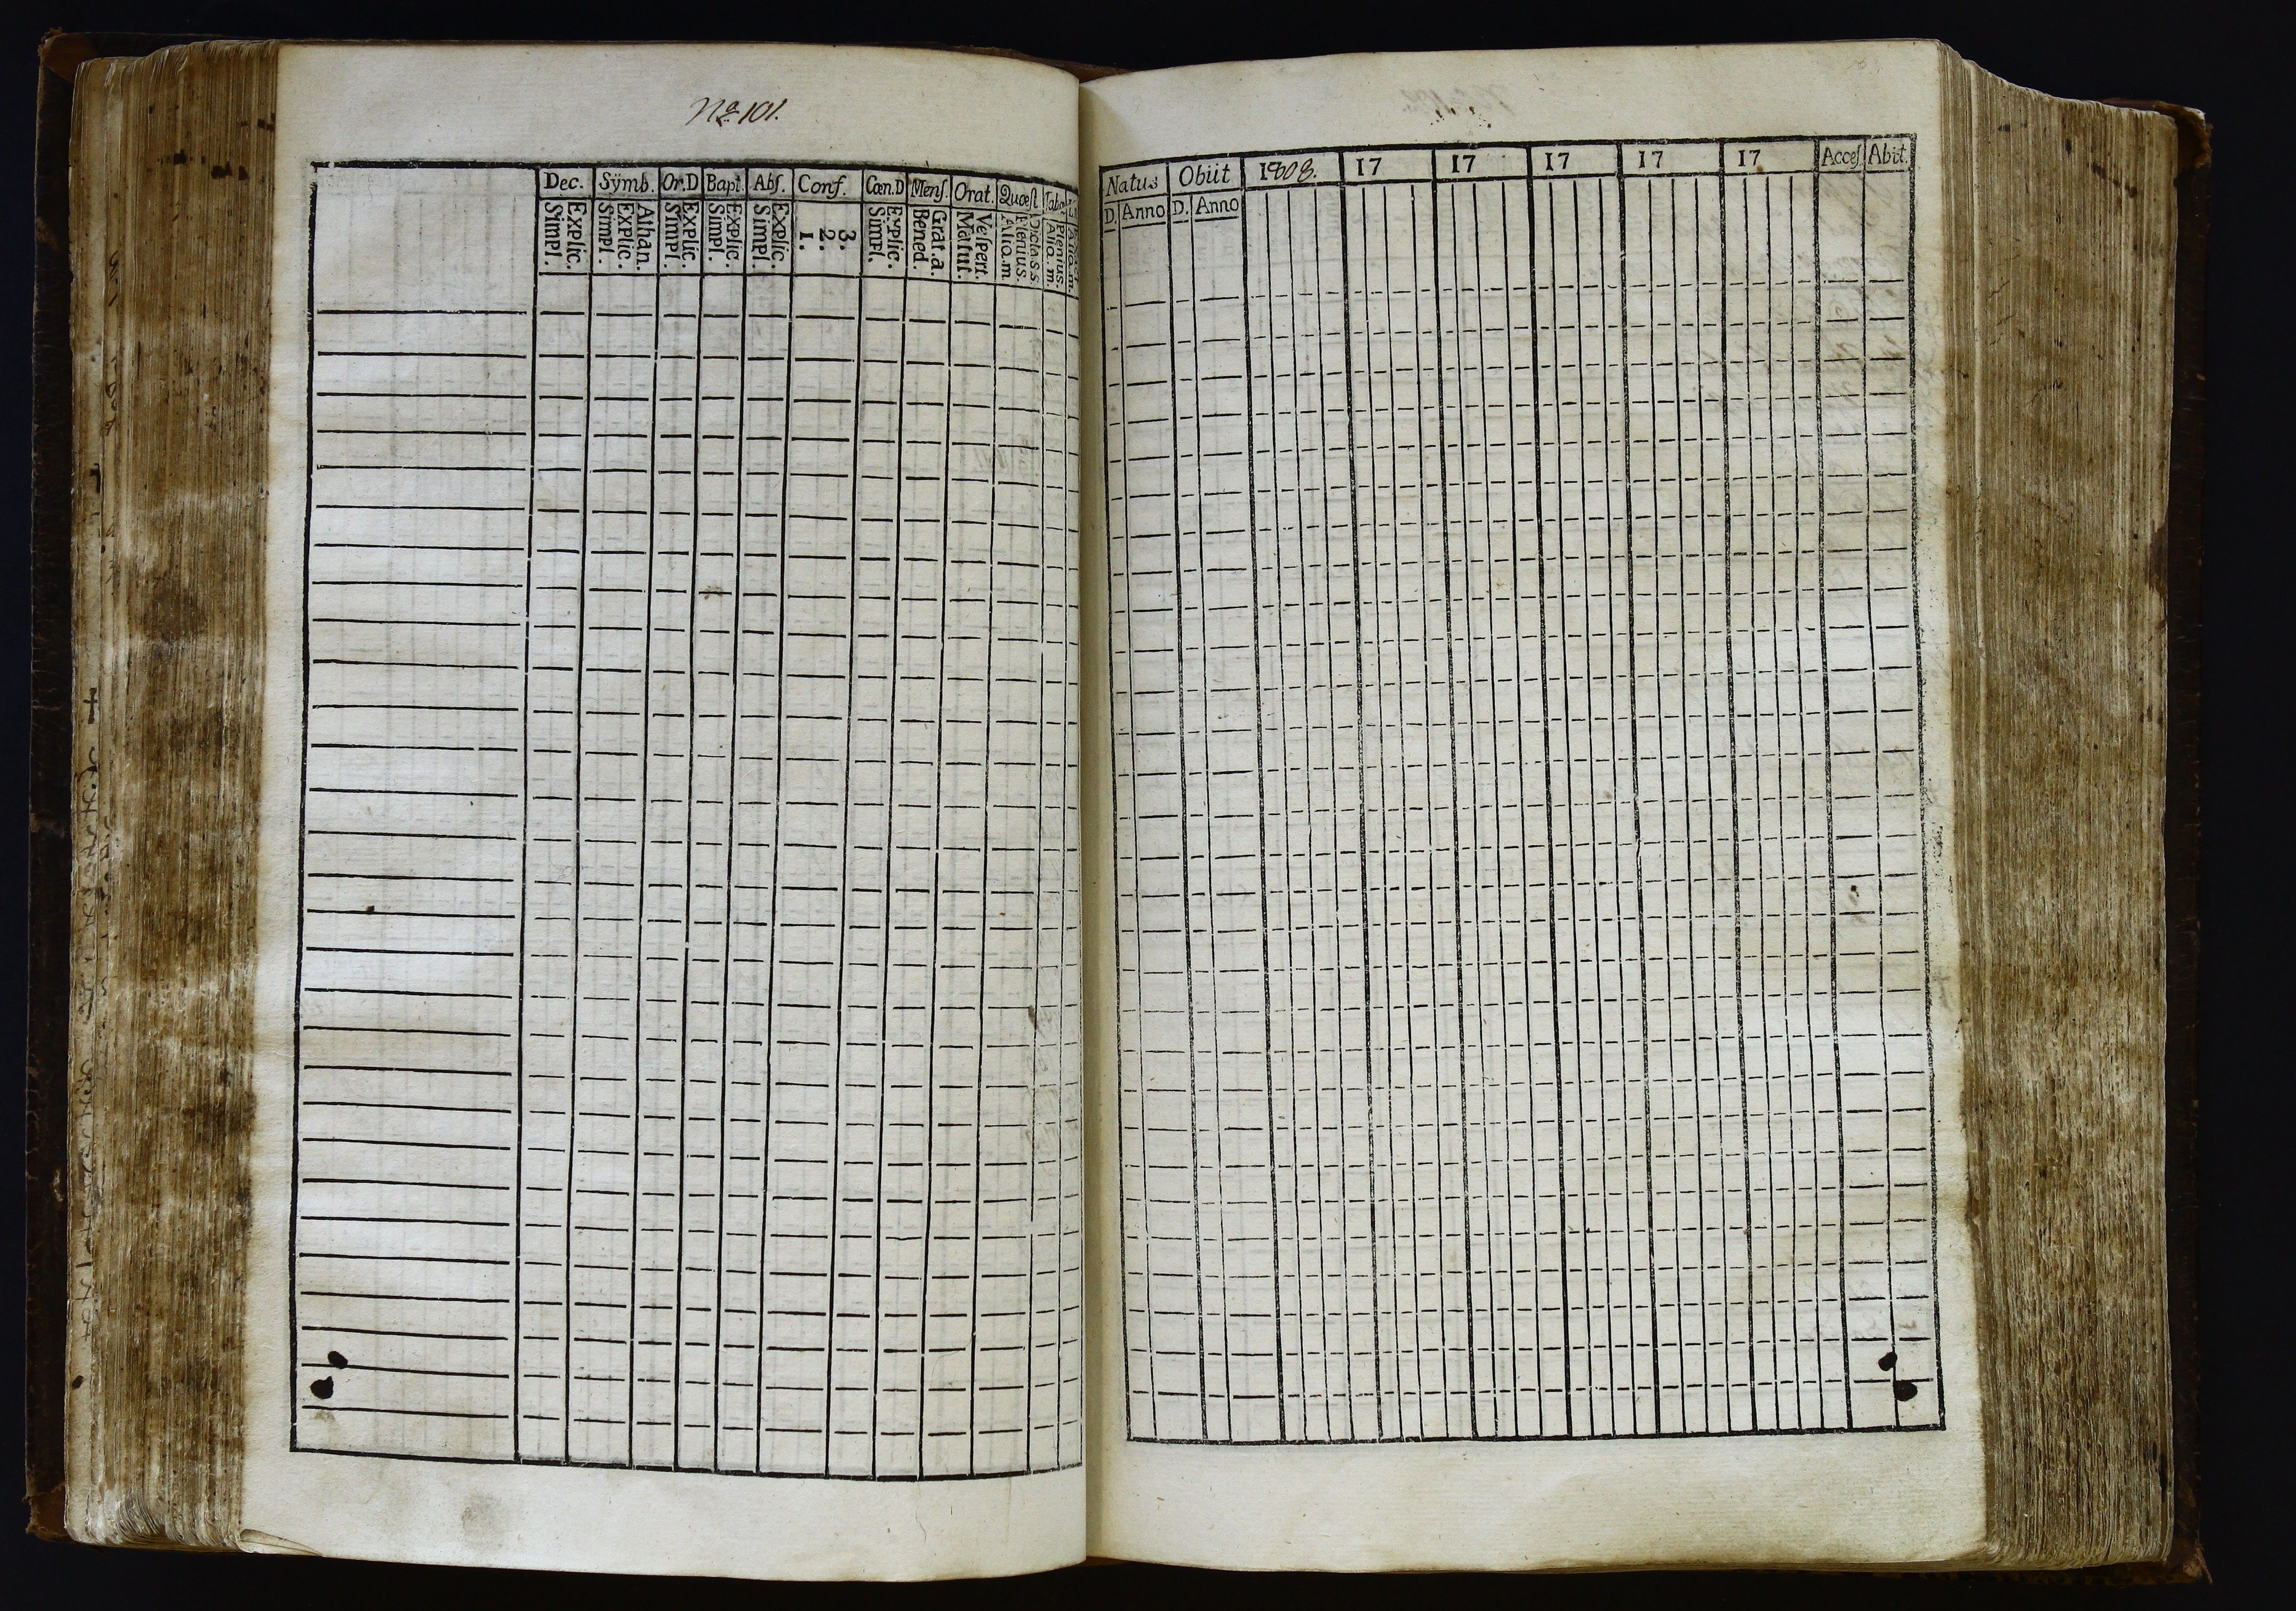 No 101.
Dec. Sÿmb. Or.D Bapt. Abſ. Conf. Cœn.D Menſ. Orat. Quœſt
Simpl. Explic. Simpl. Explic. Athan. Simpl. Explic. Simpl. Explic. Simpl. Explic. 1. 2. 3. Simpl. Explic. Bened. Grat.a. Matut. Veſpert. Alia.m. Plenius. Dict.s.s. Alia.m. Plenius.
Natus Obiit 1808. 17 17 17 17 17 Acceſ. Abit.
D. Anno D. Anno